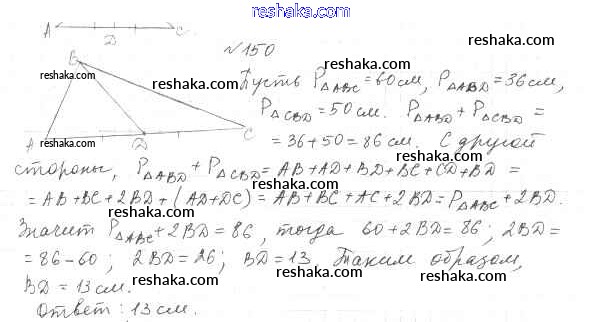 reshaka.com
A D C
reshaka.com
№150
B
reshaka.com
reshaka.com
Пусть P△ABC = 60 см, P△ABD = 36 см,
reshaka.com
P△CBD = 50 см. P△ABD + P△CBD =
A D C
reshaka.com
reshaka.com
= 36 + 50 = 86 см. С другой
стороны, P△ABD + P△CBD = AB + AD + BD + BC + CD + BD =
reshaka.com
reshaka.com
= AB + BC + 2BD + (AD + DC) = AB + BC + AC + 2BD = P△ABC + 2BD.
reshaka.com
reshaka.com
Значит P△ABC + 2BD = 86, тогда 60 + 2BD = 86; 2BD =
reshaka.com
reshaka.com
= 86 - 60; 2BD = 26; BD = 13. Таким образом,
reshaka.com
reshaka.com
BD = 13 см.
Ответ: 13 см.
reshaka.com